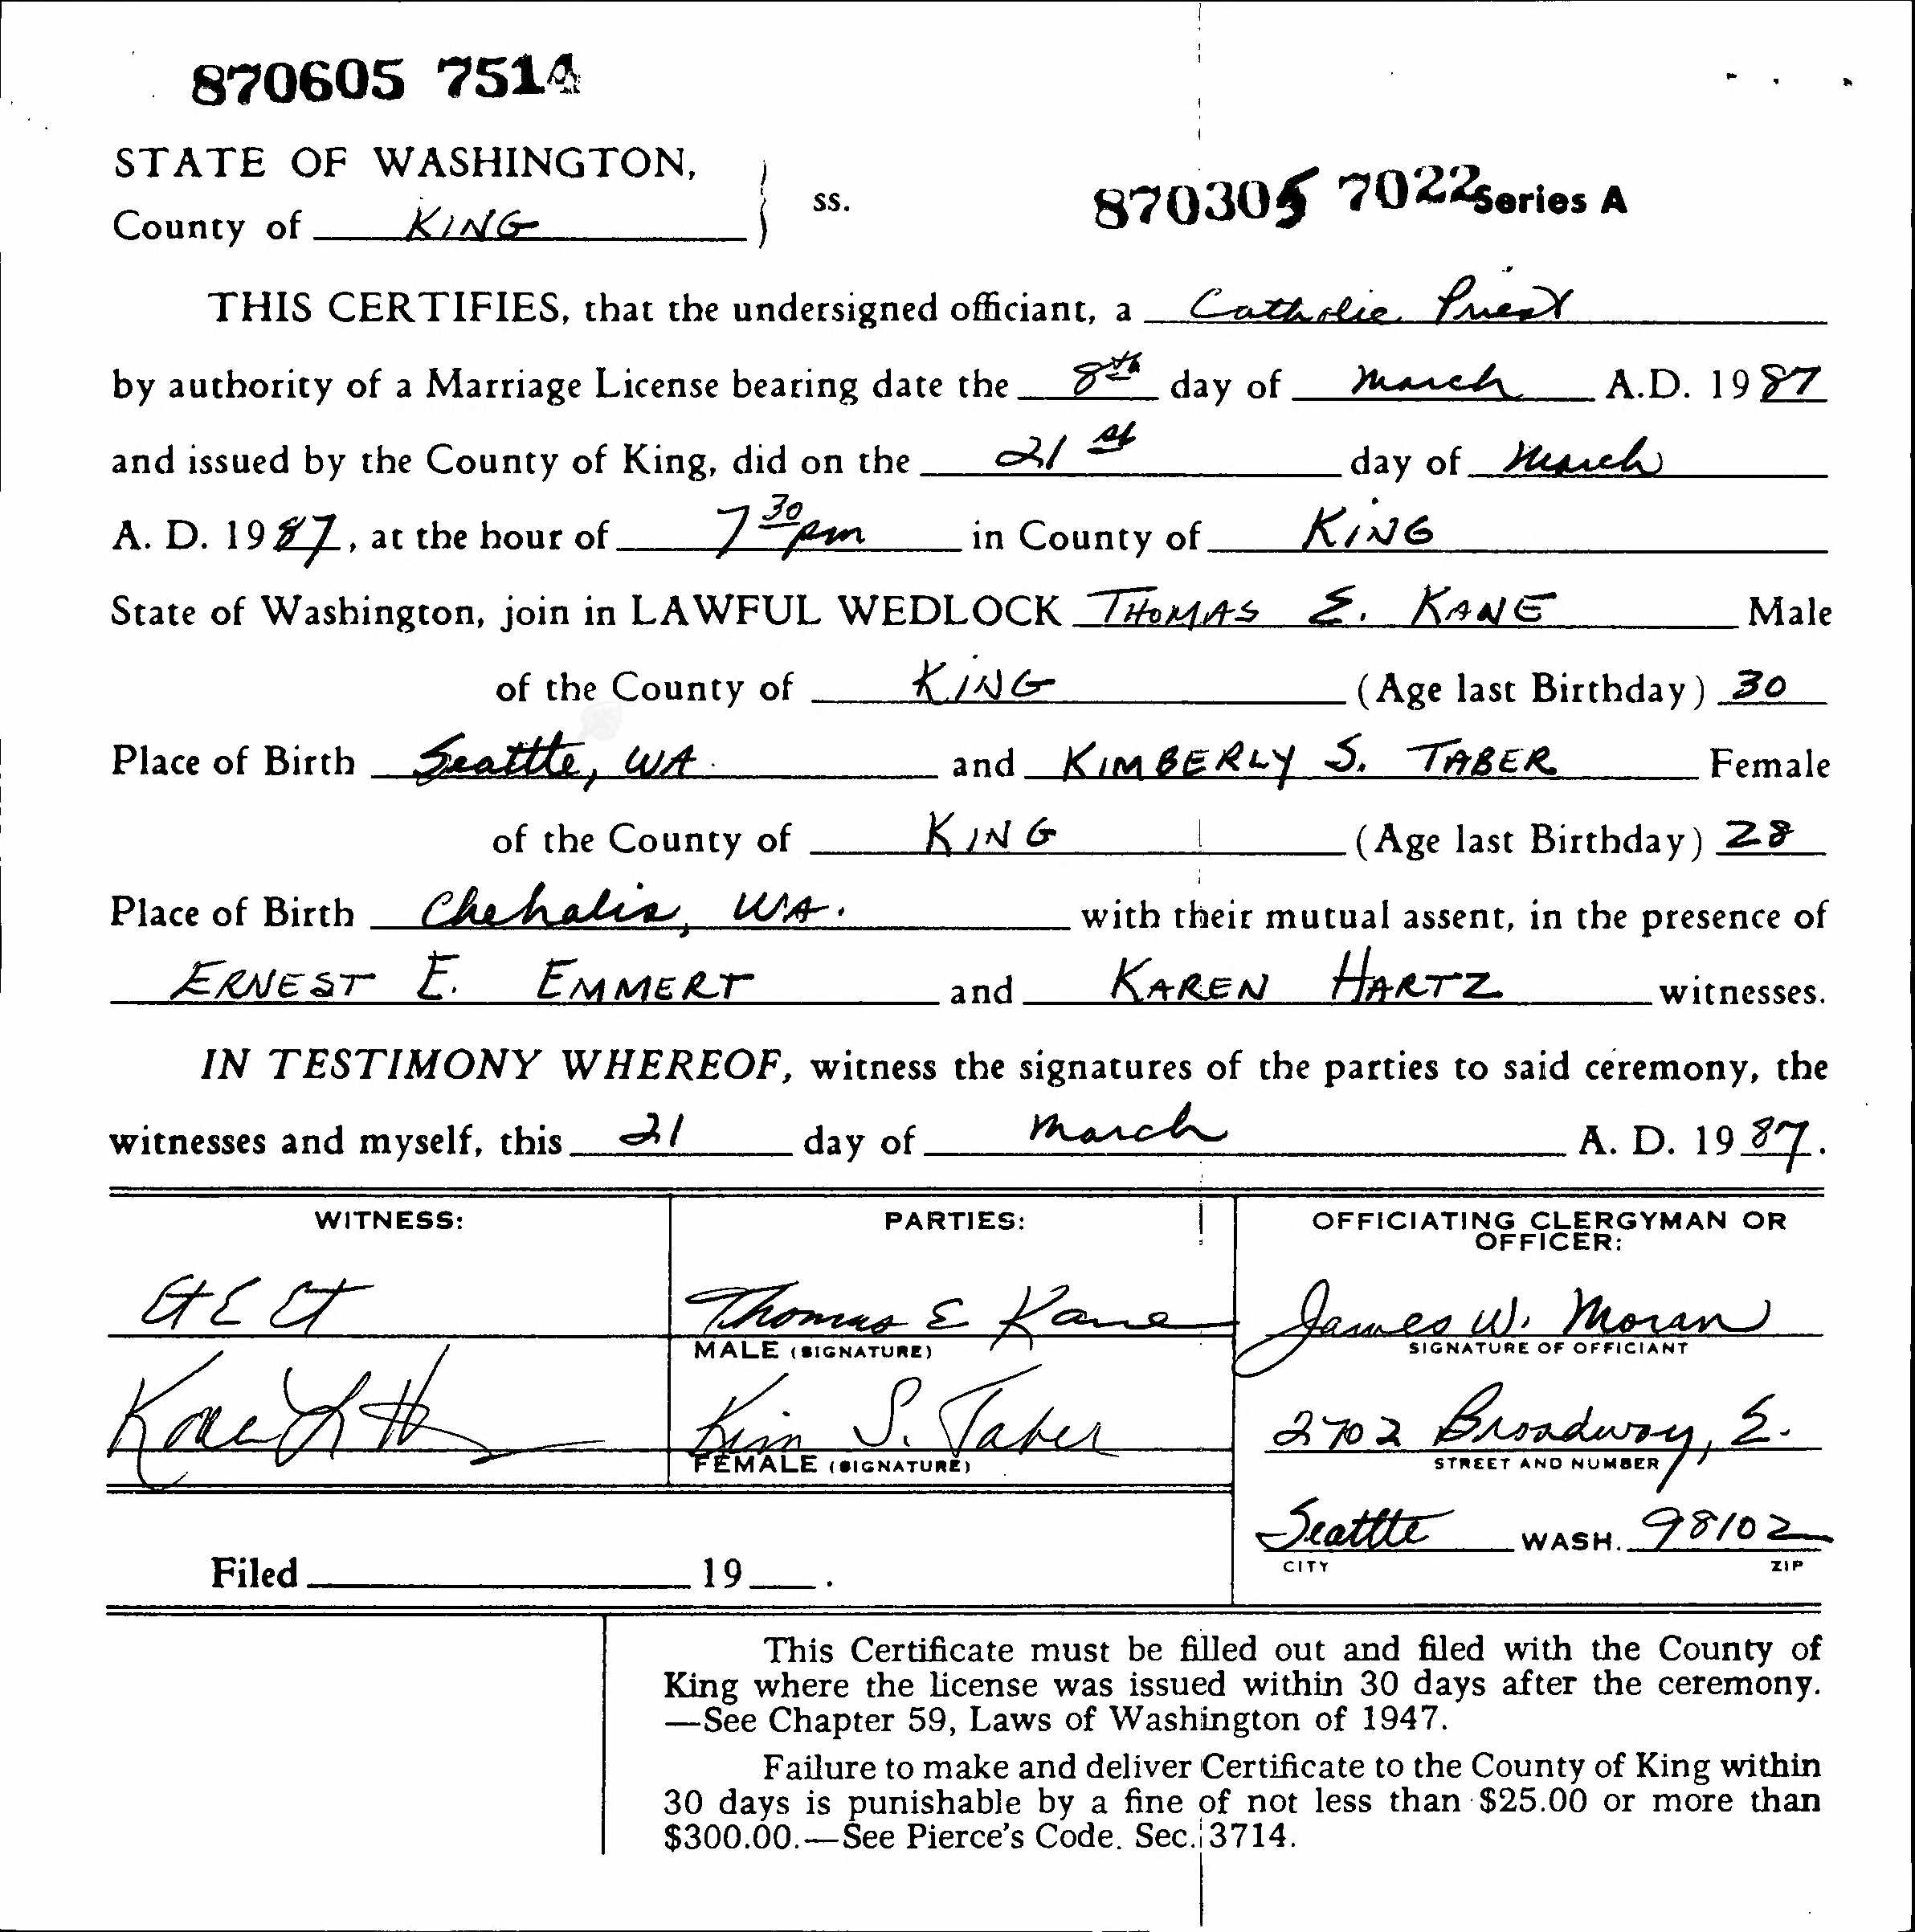 870605 7514
STATE OF WASHINGTON,
County of KING ss.
870305 7022 Series A
THIS CERTIFIES, that the undersigned officiant, a Catholic Priest
by authority of a Marriage License bearing date the 8th day of March A.D. 1987
and issued by the County of King, did on the 21st day of March
A. D. 1987, at the hour of 7 30 pm in County of KING
State of Washington, join in LAWFUL WEDLOCK THOMAS E. KANE Male
of the County of KING (Age last Birthday) 30
Place of Birth Seattle, WA. and KIMBERLY S. TABER Female
of the County of KING (Age last Birthday) 28
Place of Birth Chehalis, WA. with their mutual assent, in the presence of
ERNEST E. EMMERT and KAREN HARTZ witnesses.
IN TESTIMONY WHEREOF, witness the signatures of the parties to said ceremony, the
witnesses and myself, this 21 day of March A. D. 1987.
WITNESS: PARTIES: OFFICIATING CLERGYMAN OR
OFFICER:
Thomas E Kane James W. Moran
MALE (SIGNATURE) SIGNATURE OF OFFICIANT
Kim S. Taber 2702 Broadway, E.
FEMALE (SIGNATURE) STREET AND NUMBER
Seattle WASH. 98102
CITY ZIP
Filed 19 .
This Certificate must be filled out and filed with the County of
King where the license was issued within 30 days after the ceremony.
—See Chapter 59, Laws of Washington of 1947.
Failure to make and deliver Certificate to the County of King within
30 days is punishable by a fine of not less than $25.00 or more than
$300.00.—See Pierce's Code. Sec. 3714.